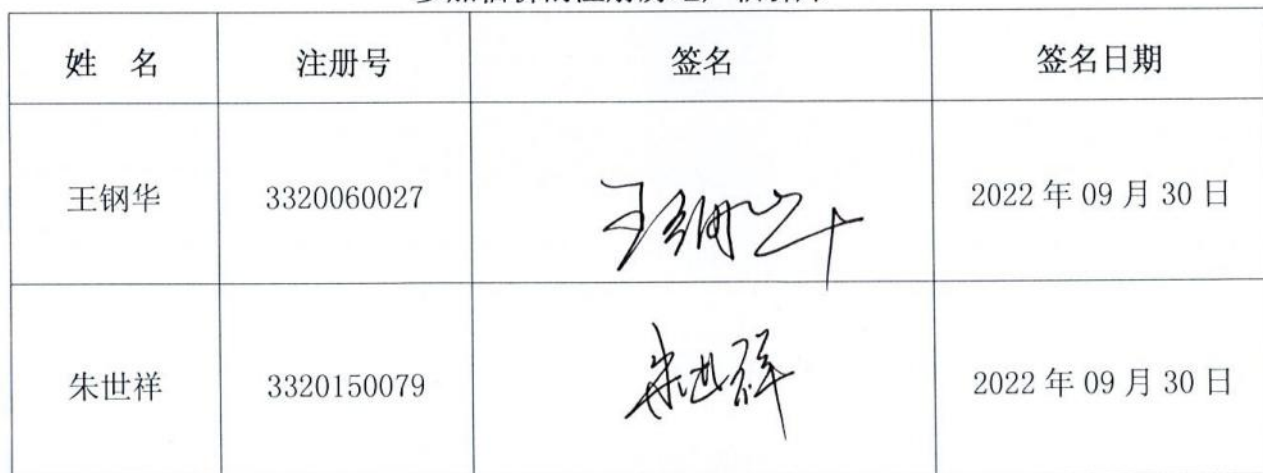 姓 名 注册号 签名 签名日期
王钢华 3320060027 王钢华 2022 年 09 月 30 日
朱世祥 3320150079 朱世祥 2022 年 09 月 30 日